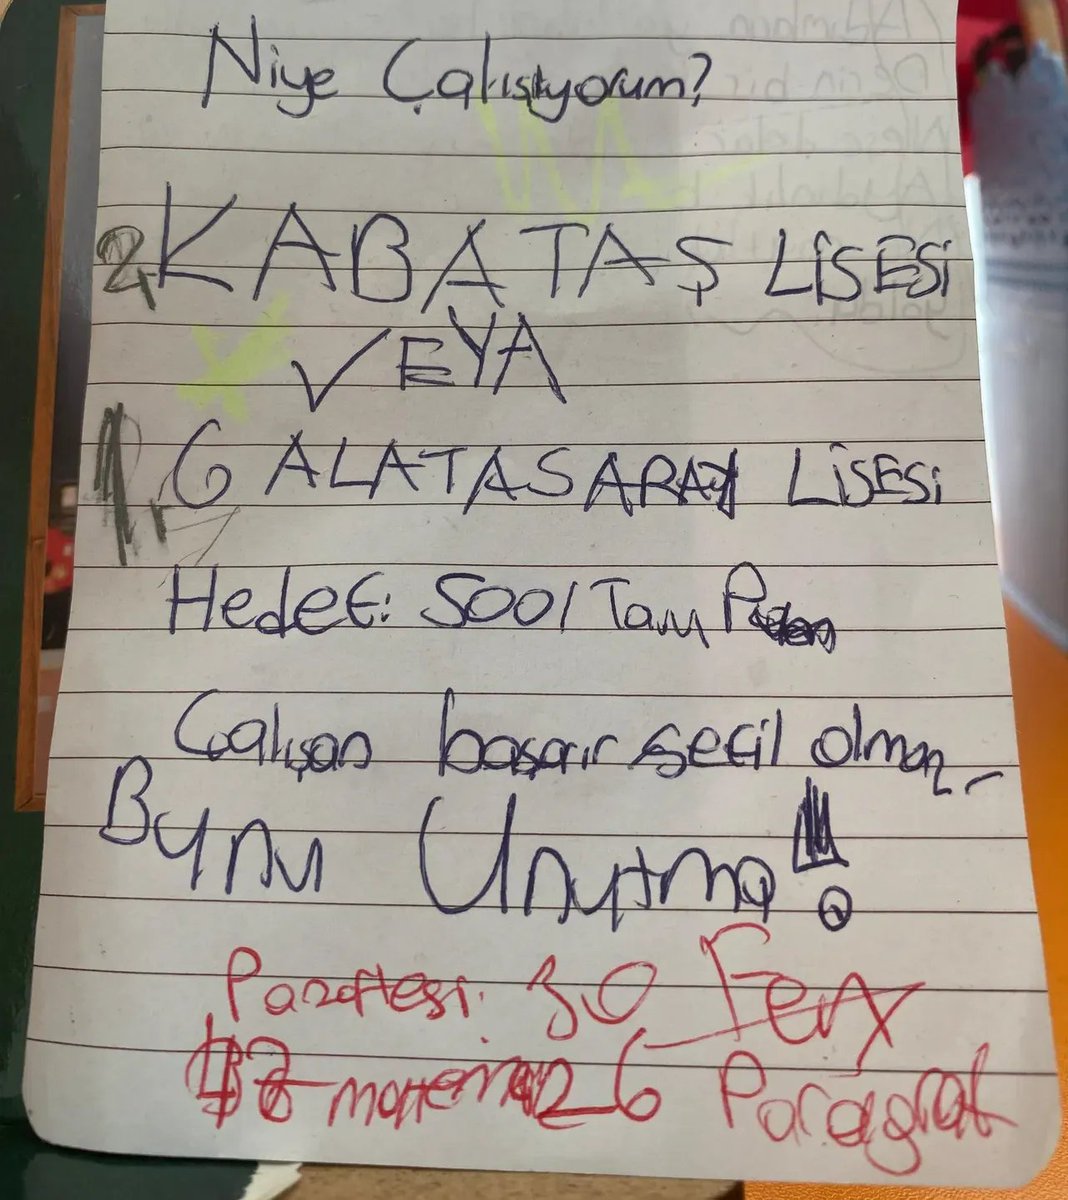 Niye Çalışıyorum?
2. KABATAŞ LİSESİ
VEYA
1. GALATASARAY LİSESİ
Hedef: 500/Tam
Çalışan başarır seçil olman
Bunu Unutma!!!
Pazartesi. 30 Fen
matematik 26 Paragraf